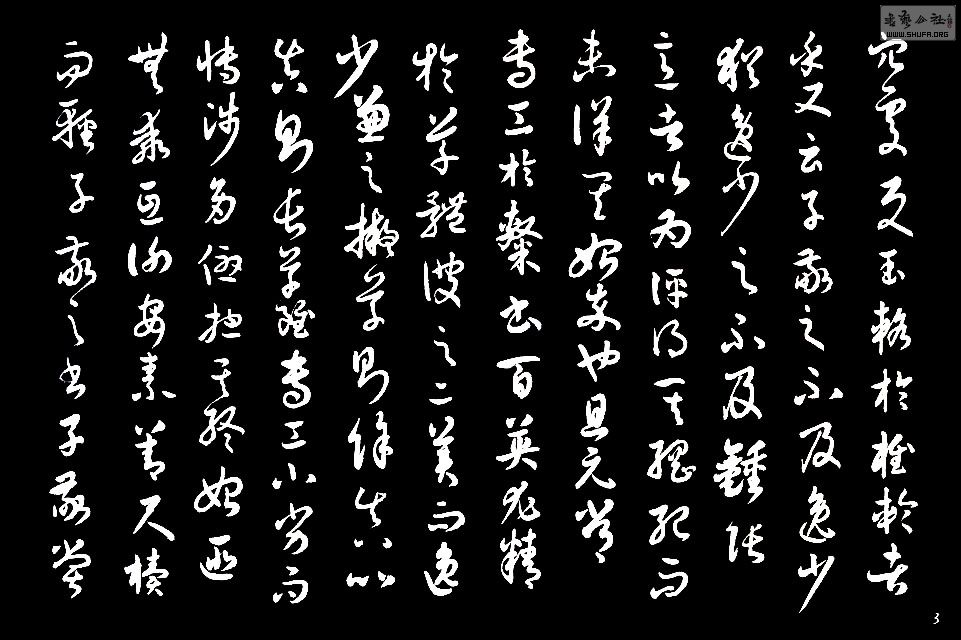 穴處反玉輅於椎輪者
乎又云子敬之不及逸少
猶逸少之不及鍾張
意者以為評得其綱紀而
未詳其始卒也且元常
專工於隸書百英尤精
於草體彼之二美而逸
少兼之擬草則餘真比
真則長草雖專工小劣而
博涉多優揔其終始匪
無乖互謝安素善尺牘
而輕子敬之書子敬嘗
書藝公社
WWW.SHUFA.ORG
3